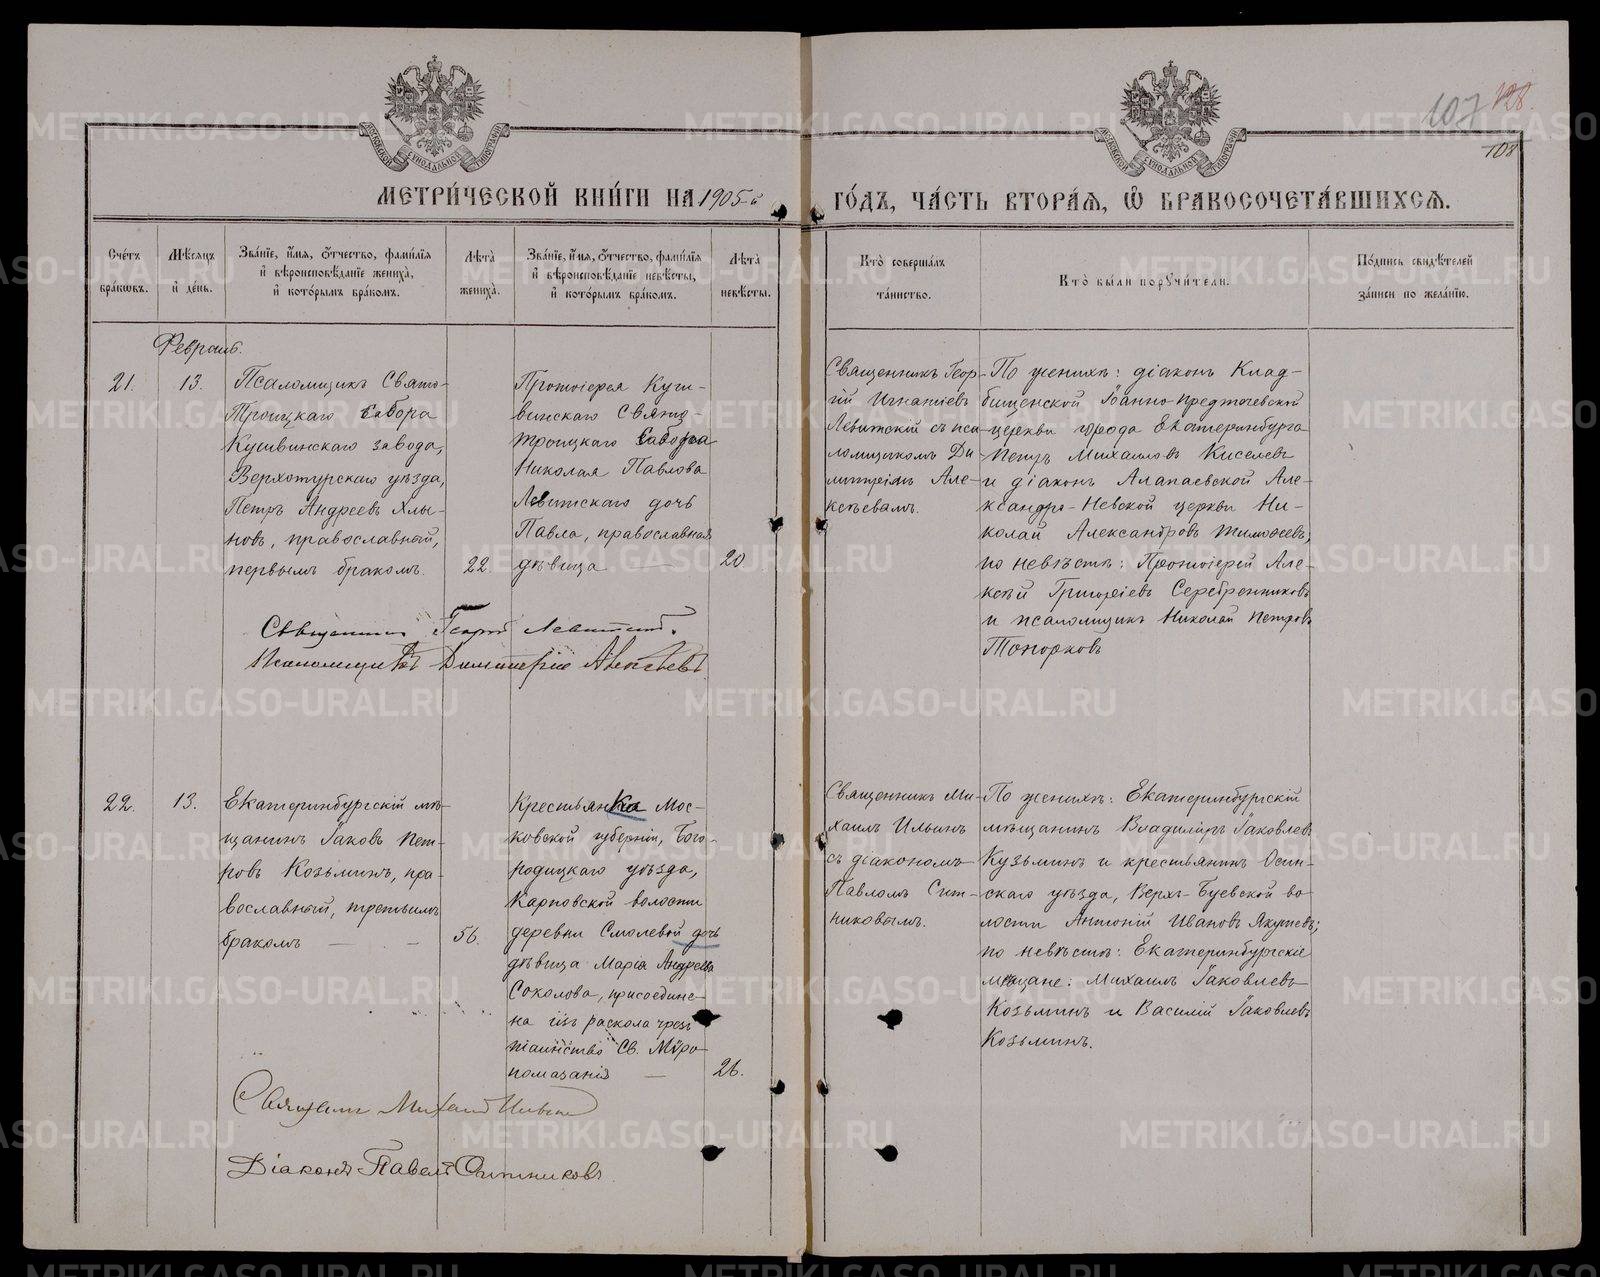 107 128.
108
МЕТРИ́ЧЕСКОЙ КНИ́ГИ НА 1905-й
ГО́ДЪ, ЧА́СТЬ ВТОРА́Я, Ѿ БРАКОСОЧЕТА́ВШИХСЯ.
Сче́тъ бра́ковъ.
Мѣ́сяцъ и́ де́нь.
Зва́ніе, и́мя, ѻ҆́тчество, фами́лія и҆ вѣроисповѣ́даніе жениха̀, и҆ кото́рымъ бра́комъ.
Лѣ́та жениха̀.
Зва́ніе, и́мя, ѻ҆́тчество, фами́лія и҆ вѣроисповѣ́даніе невѣ́сты, и҆ кото́рымъ бра́комъ.
Лѣ́та невѣ́сты.
Кто̀ соверша́лъ та́инство.
Кто̀ бы́ли порꙋчи́тели.
По́дпись свидѣ́телей за́писи по жела́нію.
Февраль.
21.
13.
Псаломщикъ Свято-
Троицкаго Собора
Кушвинскаго завода,
Верхотурскаго уѣзда,
Петръ Андреевъ Хлы-
новъ, православный,
первымъ бракомъ.
22.
Протоіерея Куш-
винскаго Свято-
Троицкаго Собора
Николая Павлова
Левитскаго дочь
Павла, православная
дѣвица —
20.
Священникъ Геор-
гій Игнатіевъ
Левитскій съ пса-
ломщикомъ Ди-
митріемъ Але-
ксѣевымъ.
По женихѣ: діаконъ Клад-
бищенской Іоанно-Предтечевской
церкви города Екатеринбурга
Петръ Михаиловъ Киселевъ
и діаконъ Алапаевской Але-
ксандро-Невской церкви Ни-
колай Александровъ Тимофеевъ,
по невѣстѣ: Протоіерей Але-
ксѣй Григоріевъ Серебренниковъ
и псаломщикъ Николай Петровъ
Топорковъ
Священникъ Георгій Левитскій.
Псаломщикъ Димитрій Алексѣевъ.
22.
13.
Екатеринбургскій мѣ-
щанинъ Іаковъ Пет-
ровъ Козьминъ, пра-
вославный, третьимъ
бракомъ — —
56.
Крестьянка Мос-
ковской губерніи, Бого-
родицкаго уѣзда,
Карповской волости
деревни Смолевой дочь
дѣвица Марія Андреева
Соколова, присоедине-
на изъ раскола чрезъ
таинство Св. Мѵро-
помазанія —
26.
Священникъ Ми-
хаилъ Ильинъ
съ діакономъ
Павломъ Сит-
никовымъ.
По женихѣ: Екатеринбургскій
мѣщанинъ Владиміръ Іаковлевъ
Кузьминъ и крестьянинъ Осин-
скаго уѣзда, Верхъ-Буевской во-
лости Антоній Ивановъ Якушевъ;
по невѣстѣ: Екатеринбургскіе
мѣщане: Михаилъ Іаковлевъ
Козьминъ и Василій Іаковлевъ
Козьминъ.
Священникъ Михаилъ Ильинъ
Діаконъ Павелъ Ситниковъ